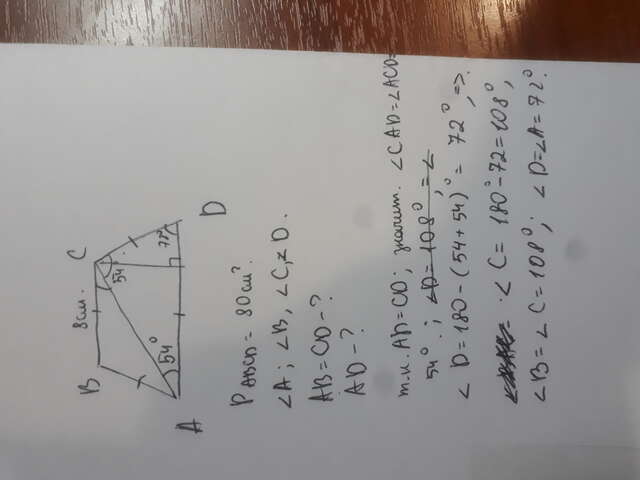 B 8см. C
54
54° 72°
A
D
P ABCD = 80см².
∠A; ∠B, ∠C, ∠D.
AB=CD-?
AD-?
т.к. AD=CD; значит. ∠CAD=∠ACD=
54°.; ∠D=108°,=∠
∠D=180-(54+54)°=72°,=>.
∠C=180°-72=108°,
∠B=∠C=108°; ∠D=∠A=72°.